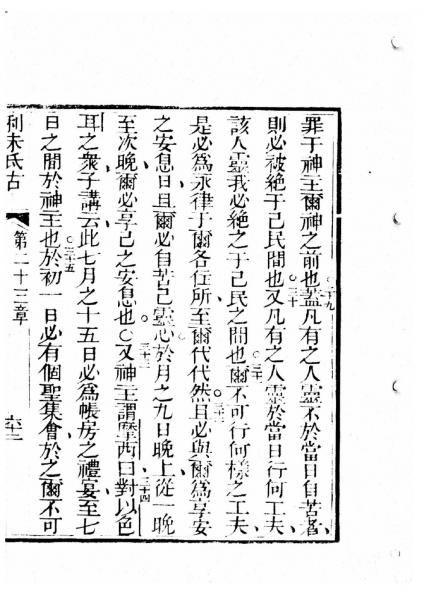 罪于神主爾神之前也蓋凡有之人靈不於當日自苦者、
二十九
則必被絕于己民間也又凡有之人靈於當日行何工夫、
三十
該人靈我必絕之于己民之間也爾不可行何樣之工夫、
三十一
是必為永律于爾各住所、至爾代代然且必與爾為享安
三十二
之安息日、且爾必自苦己靈心於月之九日晚上、從一晚
至次晚爾必享己之安息也○又神主謂摩西曰對以色
三十三
三十四
耳之衆子講云此七月之十五日必為帳房之禮宴至七
日之間於神主也於初一日必有個聖集會於之爾不可
三十五
利未氏古
第二十三章